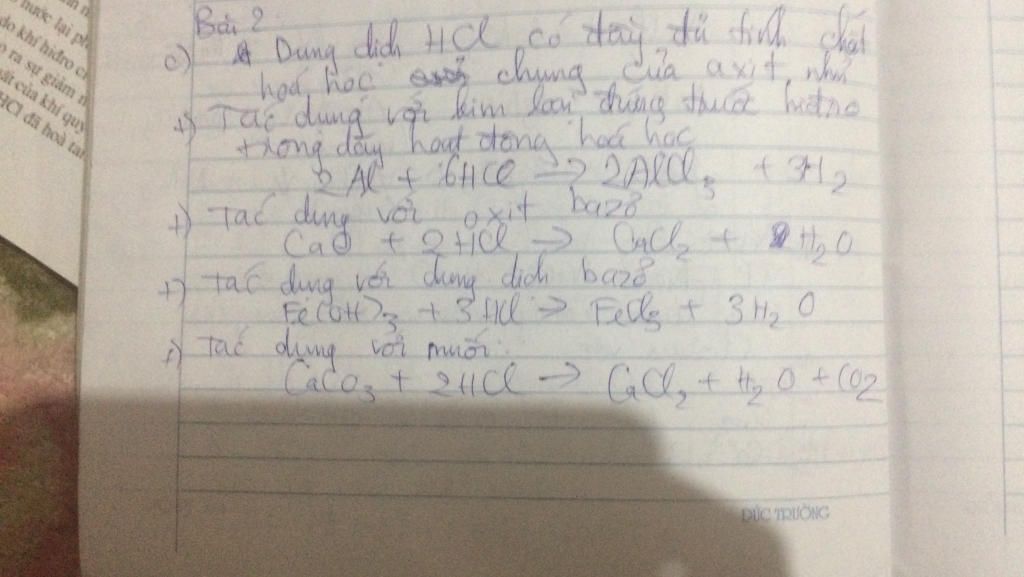 nước lại ph
do khí hiđro c
o ra sự giảm
của khí quy
HCl đã hoà tan
Bài 2
c) Dung dịch HCl có đầy đủ tính chất
hoá học chung của axit như
+) Tác dụng với kim loại đứng trước hiđro
trong dãy hoạt động hoá học
2Al + 6HCl → 2AlCl3 + 3H2
+) Tác dụng với oxit bazơ
CaO + 2HCl → CaCl2 + H2O
+) Tác dụng với dung dịch bazơ
Fe(OH)3 + 3HCl → FeCl3 + 3H2O
+) Tác dụng với muối:
CaCO3 + 2HCl → CaCl2 + H2O + CO2
ĐỨC TRƯỜNG